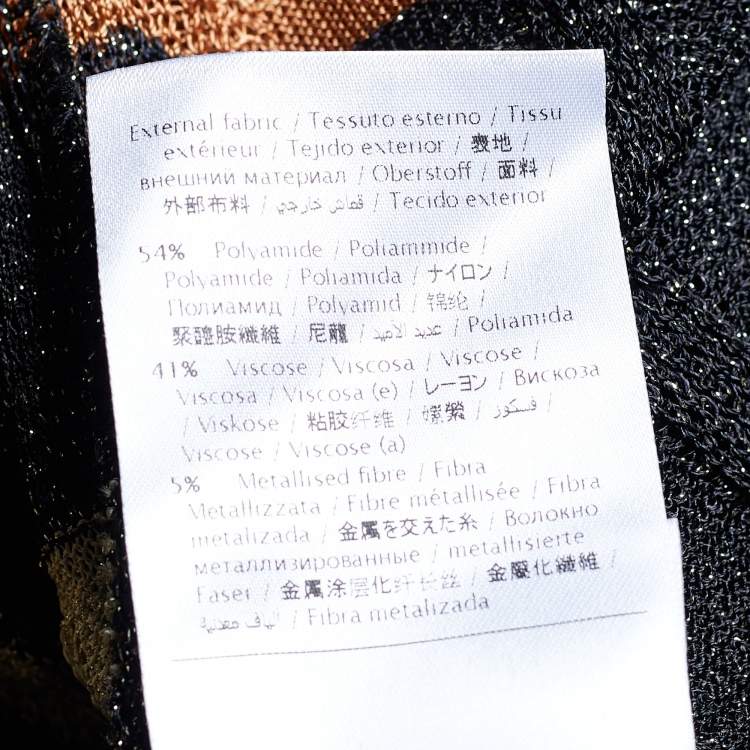 External fabric / Tessuto esterno / Tissu
extérieur / Tejido exterior / 表地 /
внешний материал / Oberstoff / 面料 /
外部布料 / قماش خارجي / Tecido exterior
54% Polyamide / Poliammide /
Polyamide / Poliamida / ナイロン /
Полиамид / Polyamid / 锦纶 /
聚醯胺纖維 / 尼龍 / عديد الأميد / Poliamida
41% Viscose / Viscosa / Viscose /
Viscosa / Viscosa (e) / レーヨン / Вискоза
/ Viskose / 粘胶纤维 / 嫘縈 / فسكوز /
Viscose / Viscose (a)
5% Metallised fibre / Fibra
Metallizzata / Fibre métallisée / Fibra
metalizada / 金属を交えた糸 / Волокно
металлизированные / metallisierte
Faser / 金属涂层化纤长丝 / 金屬化纖維 /
ألياف معدنية / Fibra metalizada